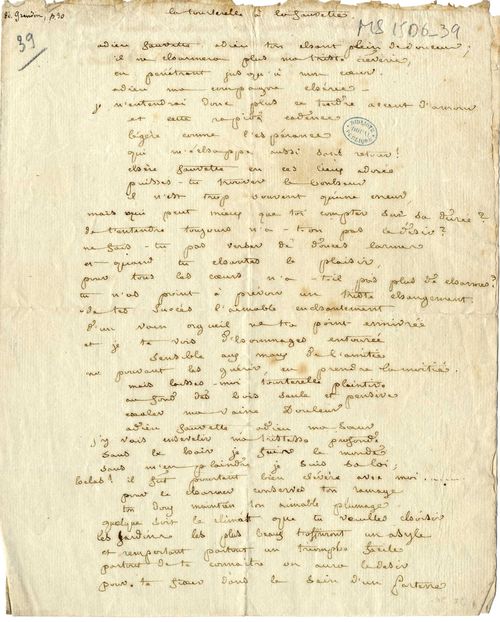 la tourterelle à la fauvette
MS 1506-39
39
adieu fauvette adieu ton chant plein de douceur ;
il ne charmera plus ma triste rêverie,
en pénétrant jusqu'à mon cœur.
adieu ma compagne chérie -
je n'entendrai donc plus ce tendre accent d'amour
et cette rapide cadence
légère comme l'espérance
qui m'echappe aussi sans retour !
BIBLIOTH
DOUAI
PUBLIQUE
chère fauvette en ces lieux adorée
puisses-tu trouver le bonheur
il n'est trop souvent qu'une erreur
mais qui peut mieux que toi compter sur sa durée ?
de t'entendre toujours n'a-t-on pas le désir ?
ne fais-tu pas verser de douces larmes
et quand tu chantes le plaisir,
pour tous les cœurs n'a-t-il pas plus de charmes ?
tu n'as point à prévoir un triste changement
de tes succès l'aimable enchantement
d'un vain orgueil ne t'a point enivrée
et je te vois d'hommages entourée
sensible aux maux de l'amitié
ne pouvant les guérir, en prendre la moitié.
mais laisses-moi tourterelle plaintive
au fond des bois seule et pensive
exaler ma vaine douleur
adieu fauvette adieu ma sœur
j'y vais ensevelir ma tristesse profonde
sans le haïr je fuis le monde
sans m'en plaindre je suis sa loi,
helas ! il fut pourtant bien sévère avec moi .......
pour le charmer conserves ton ramage
ton dous maintien ton aimable plumage
quelque soit le climat que tu veuilles choisir
les jardins les plus beaux t'offriront un asyle
et remportant partout un triomphe facile
partout de te connaître on aura le desir
pour te fixer dans le sein d'un parterre